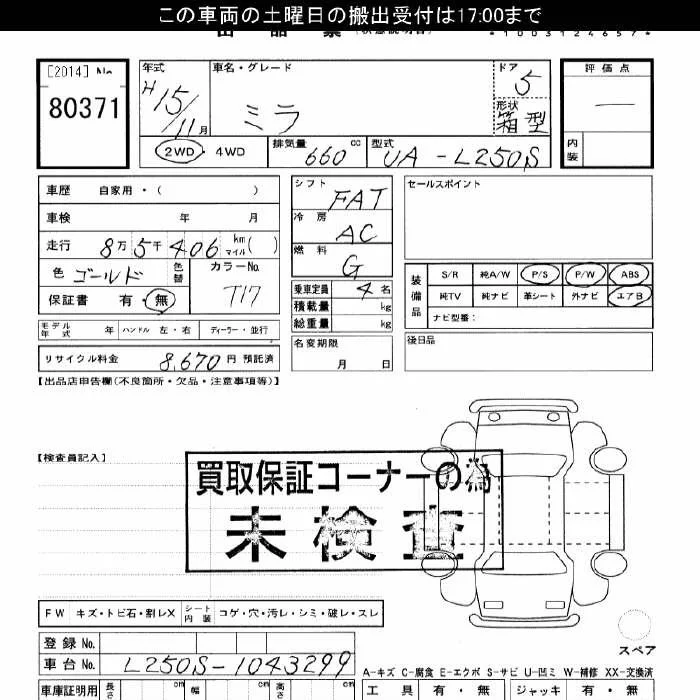 この車両の土曜日の搬出受付は17:00まで
*1003124657*
[2014] No
80371
年式 H15/11月
車名・グレード ミラ
ドア 5
形状 箱型
評価点 —
内装
2WD・4WD
排気量 660 cc
型式 UA-L250S
車歴 自家用・( )
車検 年 月
走行 8万5千406 km マイル( )
色 ゴールド 色替 カラーNo. T17
保証書 有・無
モデル年式 年 ハンドル 左・右 ディーラー・並行
リサイクル料金 8,670円 預託済
シフト FAT
冷房 AC
燃料 G
乗車定員 4名
積載量 kg
総重量 kg
名変期限
月 日
セールスポイント
装備品
S/R 純A/W P/S P/W ABS
純TV 純ナビ 革シート 外ナビ エアB
ナビ型番:
後日品
【出品店申告欄(不良箇所・欠品・注意事項等)】
【検査員記入】
買取保証コーナーの為
未検査
FW キズ・トビ石・割レX シート内装 コゲ・穴・汚レ・シミ・破レ・スレ
スペア
登録No.
車台No. L250S-1043299
A-キズ C-腐食 E-エクボ S-サビ U-凹ミ W-補修 XX-交換済
車庫証明用 長さ cm 幅 cm 高さ cm
工具 有・無 ジャッキ 有・無